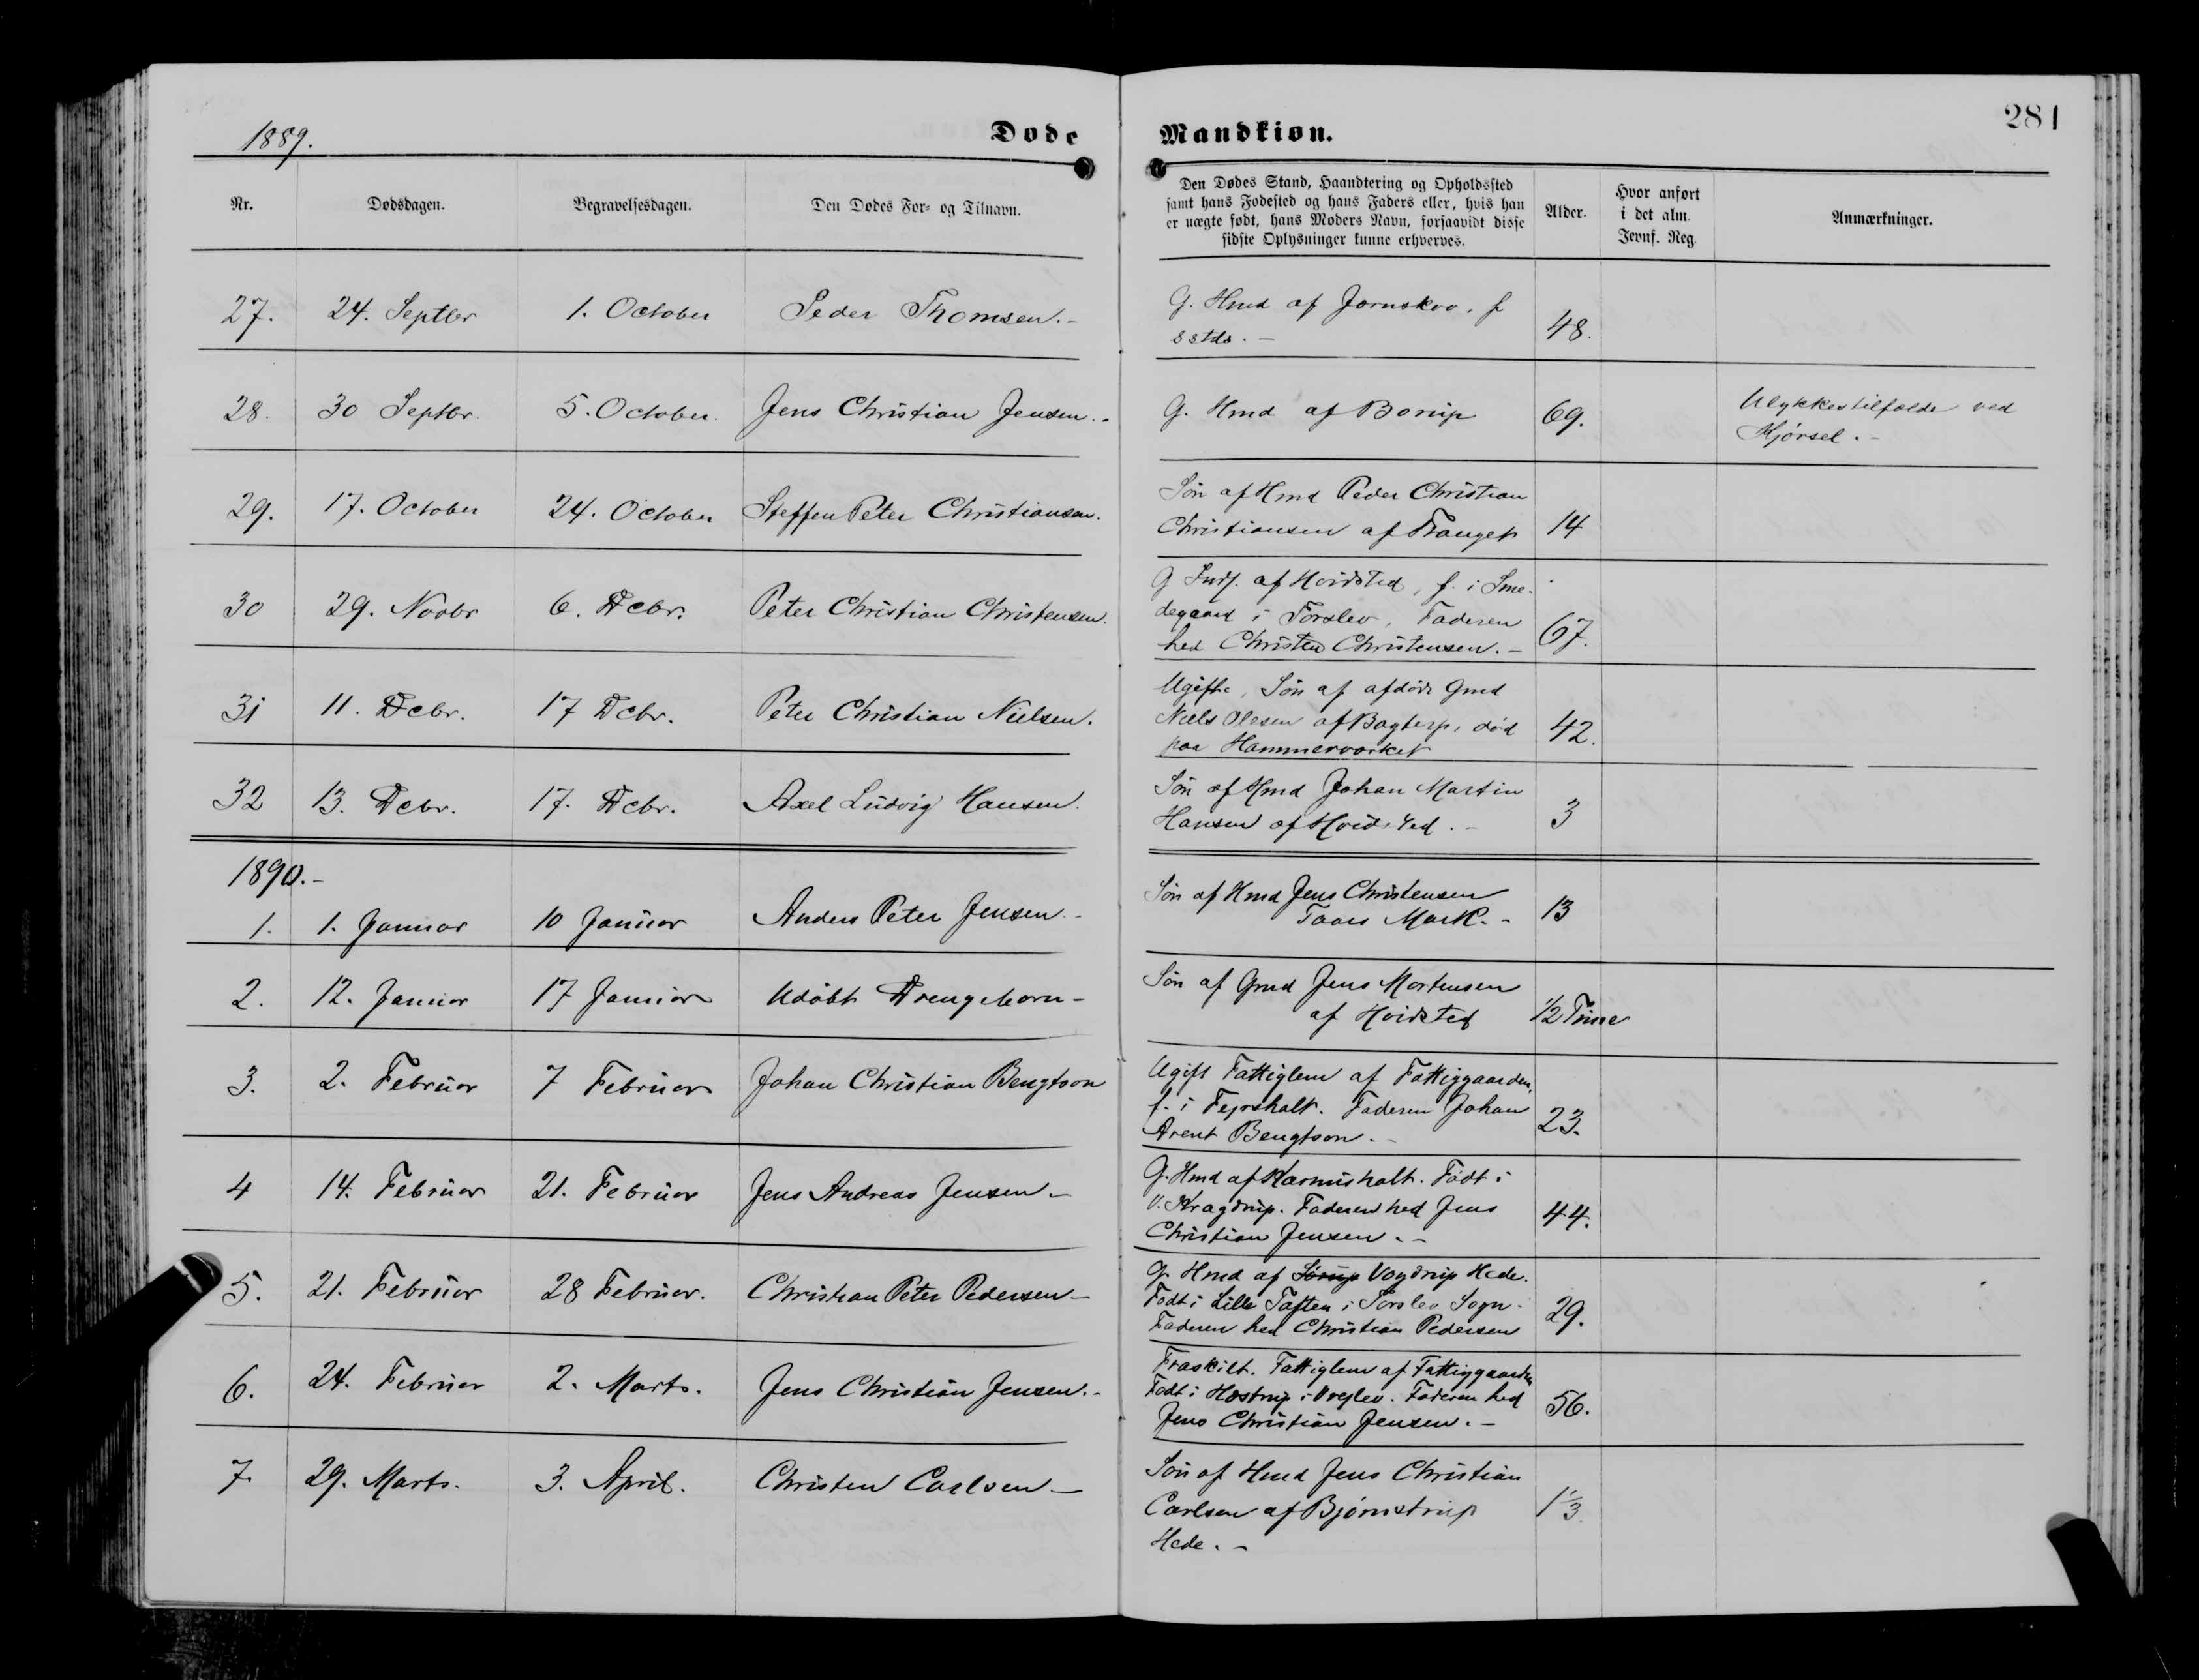 281
1889.
Døde Mandkiøn.
Nr. Dødsdagen. Begravelsesdagen. Den Dødes For- og Tilnavn. Den Dødes Stand, Haandtering og Opholdssted
samt hans Fødested og hans Faders eller, hvis han
er uægte født, hans Moders Navn, forsaavidt disse
sidste Oplysninger kunne erhverves. Alder. Hvor anført
i det alm.
Jevnf. Reg. Anmærkninger.
27. 24. Septbr 1. October Peder Thomsen.- G. Hmd af Jernskov, f
sstds.- 48.
28. 30 Septbr. 5. October. Jens Christian Jensen.- G. Hmd af Borup 69. Ulykkestilfælde ved
Kjørsel.-
29. 17. October 24. October Steffen Peter Christiansen. Søn af Hmd Peder Christian
Christiansen af Tranget 14
30 29. Novbr 6. Dcbr. Peter Christian Christensen. G Inds. af Hvidsted, f. i Sme-
degaard i Torslev, Faderen
hed Christen Christensen.- 67.
31 11. Dcbr. 17 Dcbr. Peter Christian Nielsen. Ugifte, Søn af afdøde Gmd
Niels Olesen af Bagterp, død
paa Hammerværket 42.
32 13. Dcbr. 17. Dcbr. Axel Ludvig Hansen. Søn af Hmd Johan Martin
Hansen af Hvidsted.- 3
1890.-
1. 1. Januar 10 Januar Anders Peter Jensen.- Søn af Hmd Jens Christensen
Taars Mark.- 13
2. 12. Januar 17 Januar Udøbt Drengebarn- Søn af Gmd Jens Mortensen
af Hvidsted 1/2 Time
3. 2. Februar 7 Februar Johan Christian Bengtson Ugift Fattiglem af Fattiggaarden,
f. i Fejrshalt. Faderen Johan
Arent Bengtson.- 23.
4 14. Februar 21. Februar Jens Andreas Jensen- G. Hmd af Karmisholt. Født i
V. Kragdrup. Faderen hed Jens
Christian Jensen.- 44.
5. 21. Februar 28 Februar. Christian Peter Pedersen- G. Hmd af Sørup Vogdrup Hede.
Født i Lille Toften i Torslev Sogn.
Faderen hed Christian Pedersen 29.
6. 24. Februar 2. Marts. Jens Christian Jensen.- Fraskilt. Fattiglem af Fattiggaarden
Født i Hæstrup i Vrejlev. Faderen hed
Jens Christian Jensen.- 56.
7. 29. Marts. 3. April. Christen Carlsen- Søn af Hmd Jens Christian
Carlsen af Bjørnstrup
Hede.- 1 1/3.